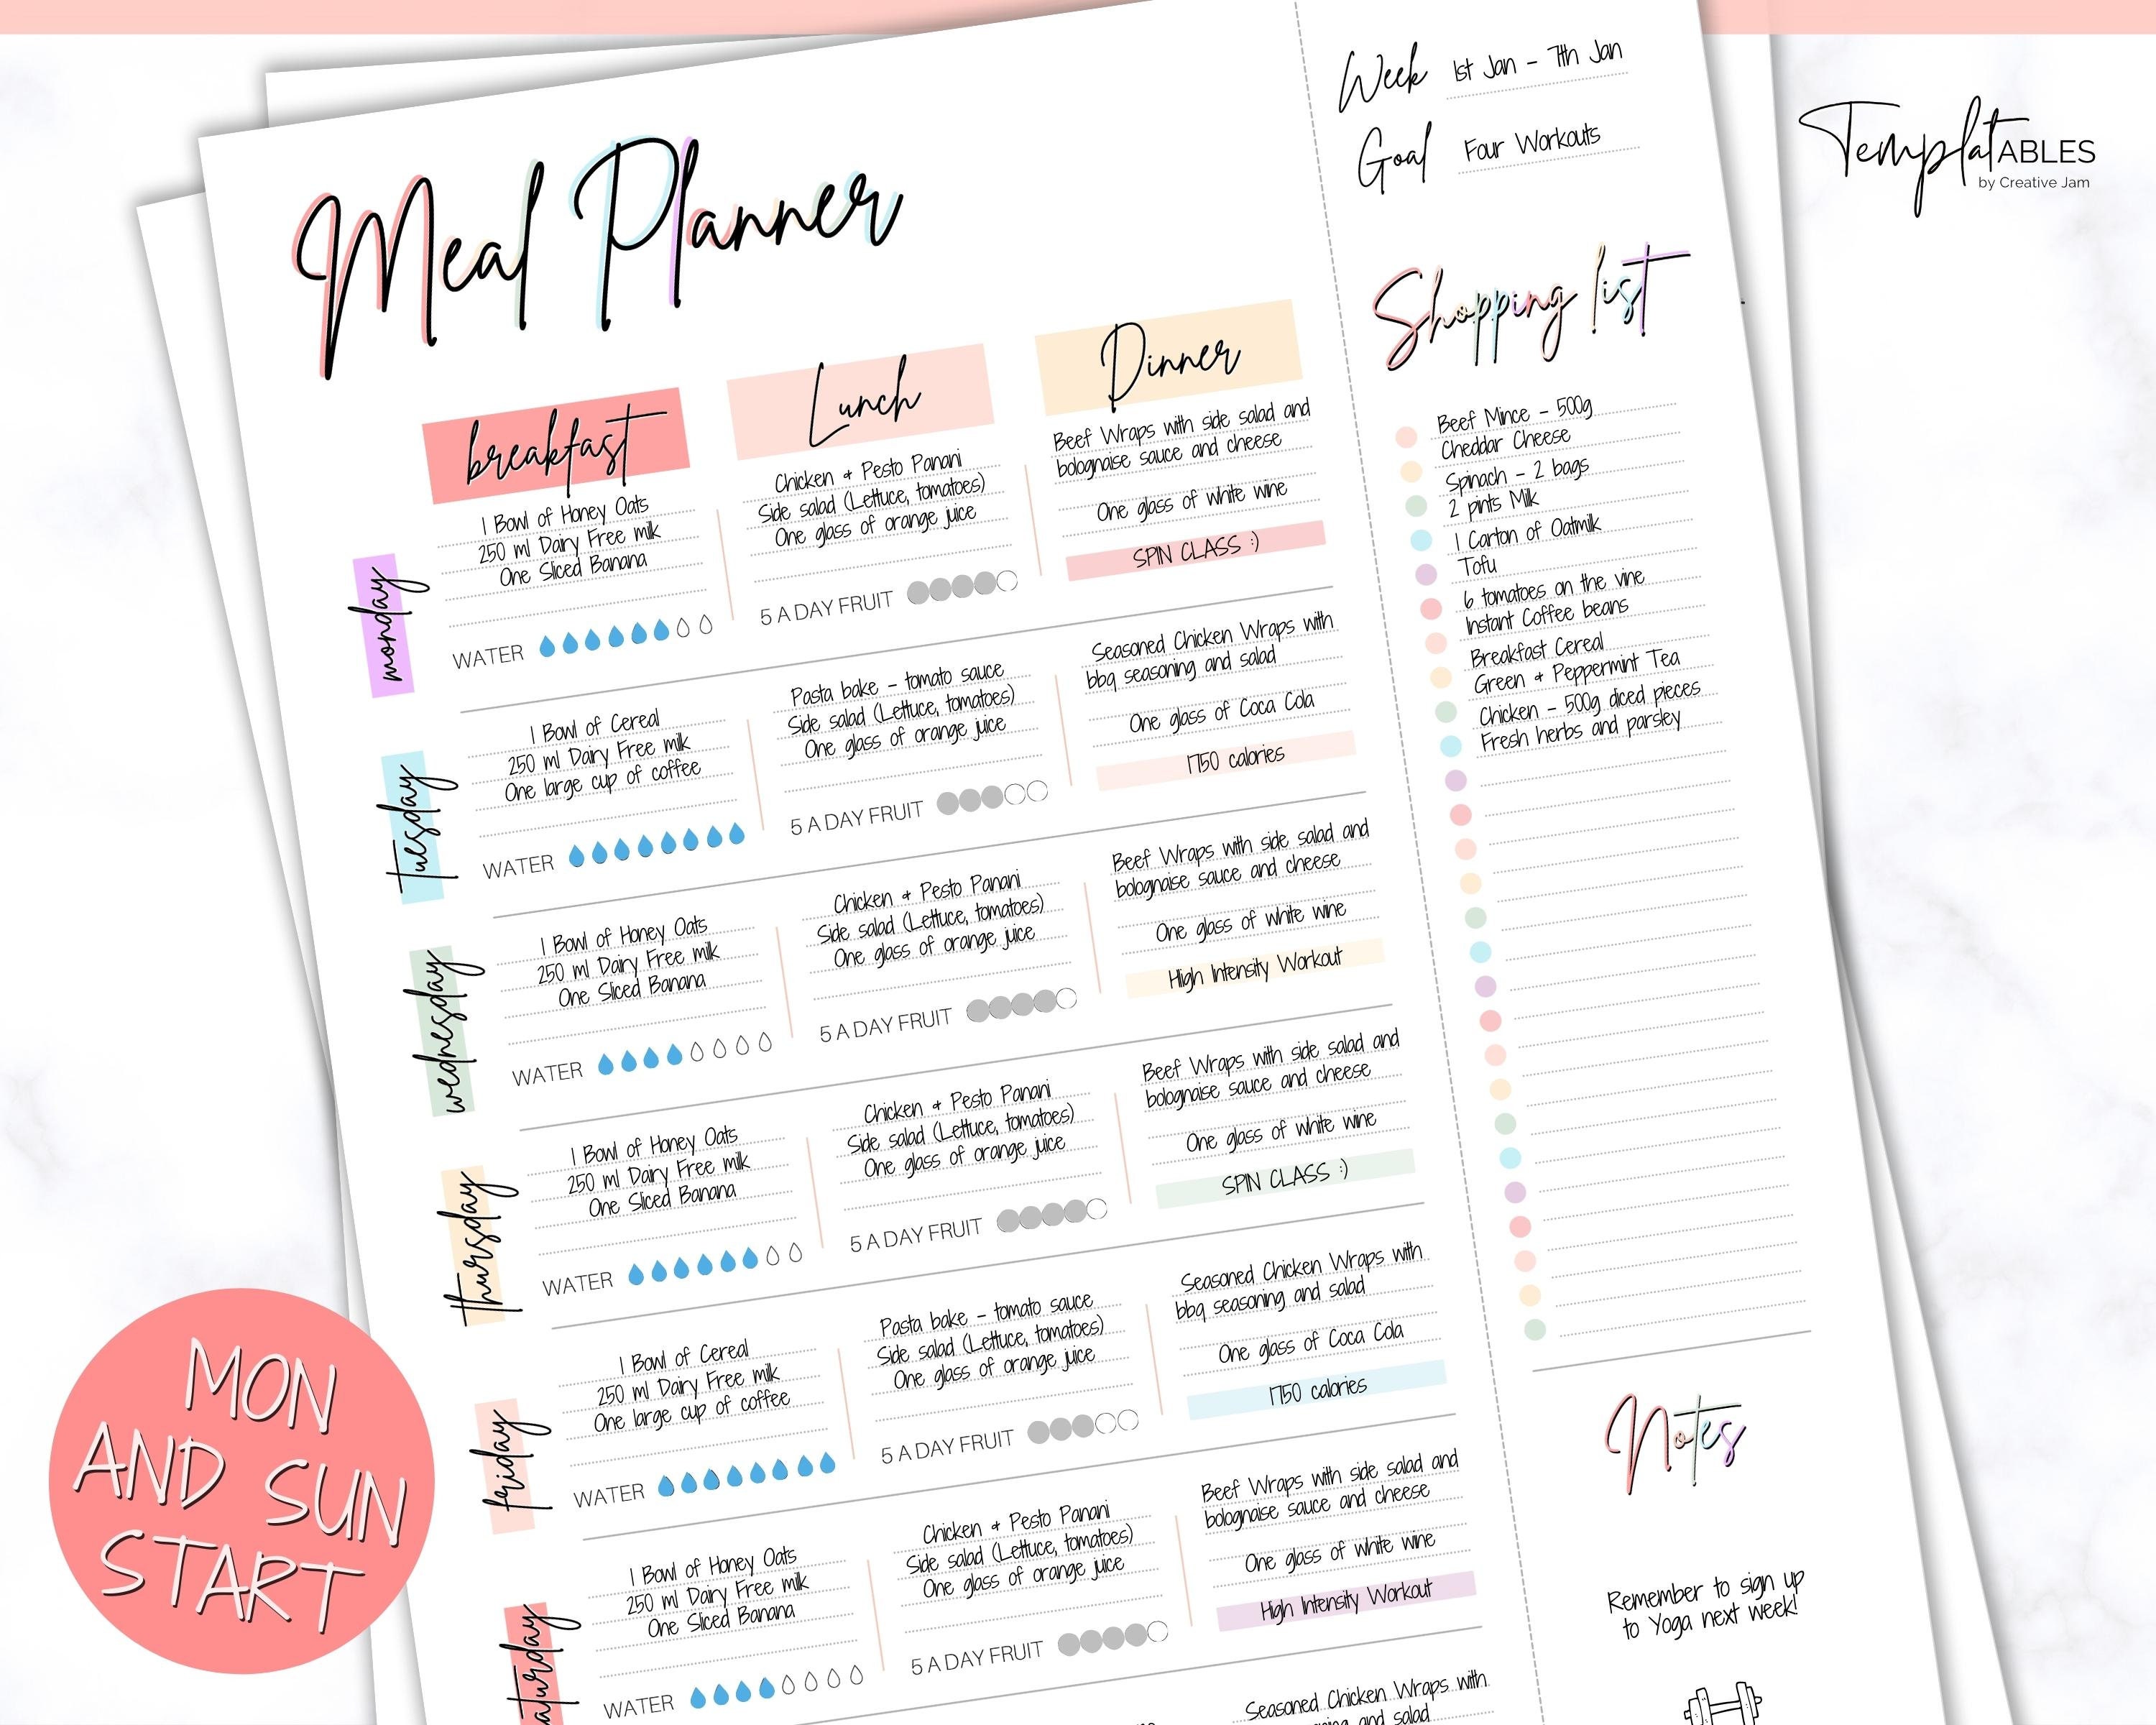 Meal Planner
Week 1st Jan - 7th Jan
Goal Four Workouts
TemplatABLES
by Creative Jam
breakfast
Lunch
Dinner
monday
1 Bowl of Honey Oats
250 ml Dairy Free milk
One Sliced Banana
WATER
Chicken & Pesto Panani
Side salad (Lettuce, tomatoes)
One glass of orange juice
5 A DAY FRUIT
Beef Wraps with side salad and
bolognaise sauce and cheese
One glass of white wine
SPIN CLASS :)
tuesday
1 Bowl of Cereal
250 ml Dairy Free milk
One large cup of coffee
WATER
Pasta bake - tomato sauce
Side salad (Lettuce, tomatoes)
One glass of orange juice
5 A DAY FRUIT
Seasoned Chicken Wraps with
bbq seasoning and salad
One glass of Coca Cola
1750 calories
wednesday
1 Bowl of Honey Oats
250 ml Dairy Free milk
One Sliced Banana
WATER
Chicken & Pesto Panani
Side salad (Lettuce, tomatoes)
One glass of orange juice
5 A DAY FRUIT
Beef Wraps with side salad and
bolognaise sauce and cheese
One glass of white wine
High Intensity Workout
thursday
1 Bowl of Honey Oats
250 ml Dairy Free milk
One Sliced Banana
WATER
Chicken & Pesto Panani
Side salad (Lettuce, tomatoes)
One glass of orange juice
5 A DAY FRUIT
Beef Wraps with side salad and
bolognaise sauce and cheese
One glass of white wine
SPIN CLASS :)
friday
1 Bowl of Cereal
250 ml Dairy Free milk
One large cup of coffee
WATER
Pasta bake - tomato sauce
Side salad (Lettuce, tomatoes)
One glass of orange juice
5 A DAY FRUIT
Seasoned Chicken Wraps with
bbq seasoning and salad
One glass of Coca Cola
1750 calories
aturday
1 Bowl of Honey Oats
250 ml Dairy Free milk
One Sliced Banana
WATER
Chicken & Pesto Panani
Side salad (Lettuce, tomatoes)
One glass of orange juice
5 A DAY FRUIT
Beef Wraps with side salad and
bolognaise sauce and cheese
One glass of white wine
High Intensity Workout
Seasoned Chicken Wraps with
and salad
Shopping list
Beef Mince - 500g
Cheddar Cheese
Spinach - 2 bags
2 pints Milk
1 Carton of Oatmilk
Tofu
6 tomatoes on the vine
Instant Coffee beans
Breakfast Cereal
Green & Peppermint Tea
Chicken - 500g diced pieces
Fresh herbs and parsley
Notes
Remember to sign up
to Yoga next week!
MON
AND SUN
START